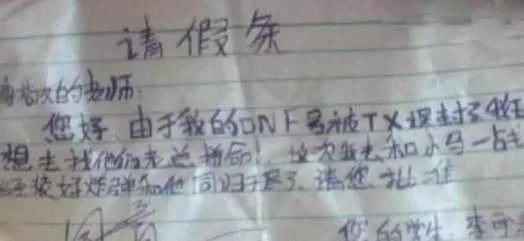 请假条
尊敬的老师
您好 由于我的DNF号被TX误封了,我
想去找他们老总拼命!这次我去和小马一占
装好炸弹和他同归于尽了,请您批准
同意
您的学生